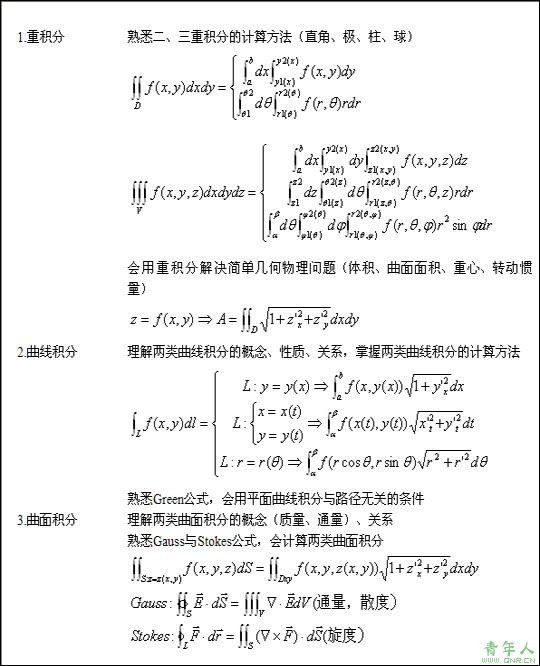 1.重积分 熟悉二、三重积分的计算方法（直角、极、柱、球）
∬_D f(x,y)dxdy = { ∫_a^b dx ∫_{y1(x)}^{y2(x)} f(x,y)dy
∫_{θ1}^{θ2} dθ ∫_{r1(θ)}^{r2(θ)} f(r,θ)rdr
∭_V f(x,y,z)dxdydz = { ∫_a^b dx ∫_{y1(x)}^{y2(x)} dy ∫_{z1(x,y)}^{z2(x,y)} f(x,y,z)dz
∫_{z1}^{z2} dz ∫_{θ1(z)}^{θ2(z)} dθ ∫_{r1(z,θ)}^{r2(z,θ)} f(r,θ,z)rdr
∫_α^β dθ ∫_{φ1(θ)}^{φ2(θ)} dφ ∫_{r1(θ,φ)}^{r2(θ,φ)} f(r,θ,φ)r² sin φdr
会用重积分解决简单几何物理问题（体积、曲面面积、重心、转动惯
量）
z = f(x,y) ⇒ A = ∬_D √(1+z'_x²+z'_y²) dxdy
2.曲线积分 理解两类曲线积分的概念、性质、关系，掌握两类曲线积分的计算方法
∫_L f(x,y)dl = { L: y = y(x) ⇒ ∫_a^b f(x,y(x))√(1+y'_x²) dx
L: { x = x(t)
y = y(t) ⇒ ∫_α^β f(x(t),y(t))√(x'_t²+y'_t²) dt
L: r = r(θ) ⇒ ∫_α^β f(r cosθ, r sin θ)√(r²+r'²) dθ
熟悉Green公式，会用平面曲线积分与路径无关的条件
3.曲面积分 理解两类曲面积分的概念（质量、通量）、关系
熟悉Gauss与Stokes公式，会计算两类曲面积分
∬_{S:z=z(x,y)} f(x,y,z)dS = ∬_{Dxy} f(x,y,z(x,y))√(1+z'_x²+z'_y²) dxdy
Gauss: ∯_S E⃗·dS⃗ = ∭_V ∇·E⃗dV (通量，散度)
Stokes: ∮_L F⃗·dr⃗ = ∬_S (∇×F⃗)·dS⃗ (旋度)
青年人
www.QNR.CN